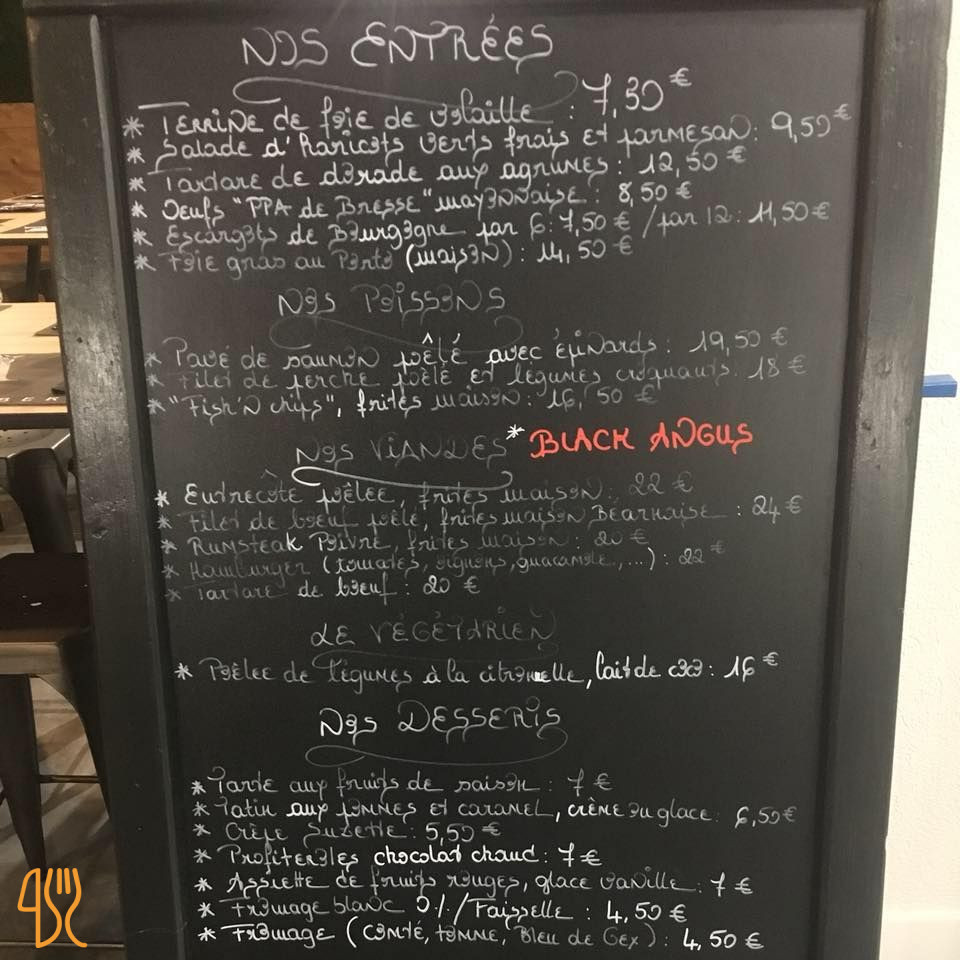 NOS ENTRÉES
* Terrine de foie de volaille : 7,50 €
* Salade d'haricots verts frais et parmesan : 9,50 €
* Tartare de dorade aux agrumes : 12,50 €
* Oeufs "PPA de Bresse" mayonnaise : 8,50 €
* Escargots de Bourgogne par 6 : 7,50 € / par 12 : 11,50 €
* Foie gras au Porto (maison) : 14,50 €
NOS POISSONS
* Pavé de saumon poêlé avec épinards : 19,50 €
* Filet de perche poêlé et légumes croquants : 18 €
* "Fish'n chips", frites maison : 16,50 €
NOS VIANDES * BLACK ANGUS
* Entrecôte poêlée, frites maison : 22 €
* Filet de bœuf poêlé, frites maison Béarnaise : 24 €
* Rumsteak Poivre, frites maison : 20 €
* Hamburger (tomates, oignons, guacamole, ...) : 22 €
* Tartare de bœuf : 20 €
LE VÉGÉTARIEN
* Poêlée de légumes à la citronnelle, lait de coco : 16 €
NOS DESSERTS
* Tarte aux fruits de saison : 7 €
* Tatin aux pommes et caramel, crème ou glace : 6,50 €
* Crêpe Suzette : 5,50 €
* Profiteroles chocolat chaud : 7 €
* Assiette de fruits rouges, glace vanille : 7 €
* Fromage blanc 0% / Faisselle : 4,50 €
* Fromage (comté, tomme, Bleu de Gex) : 4,50 €